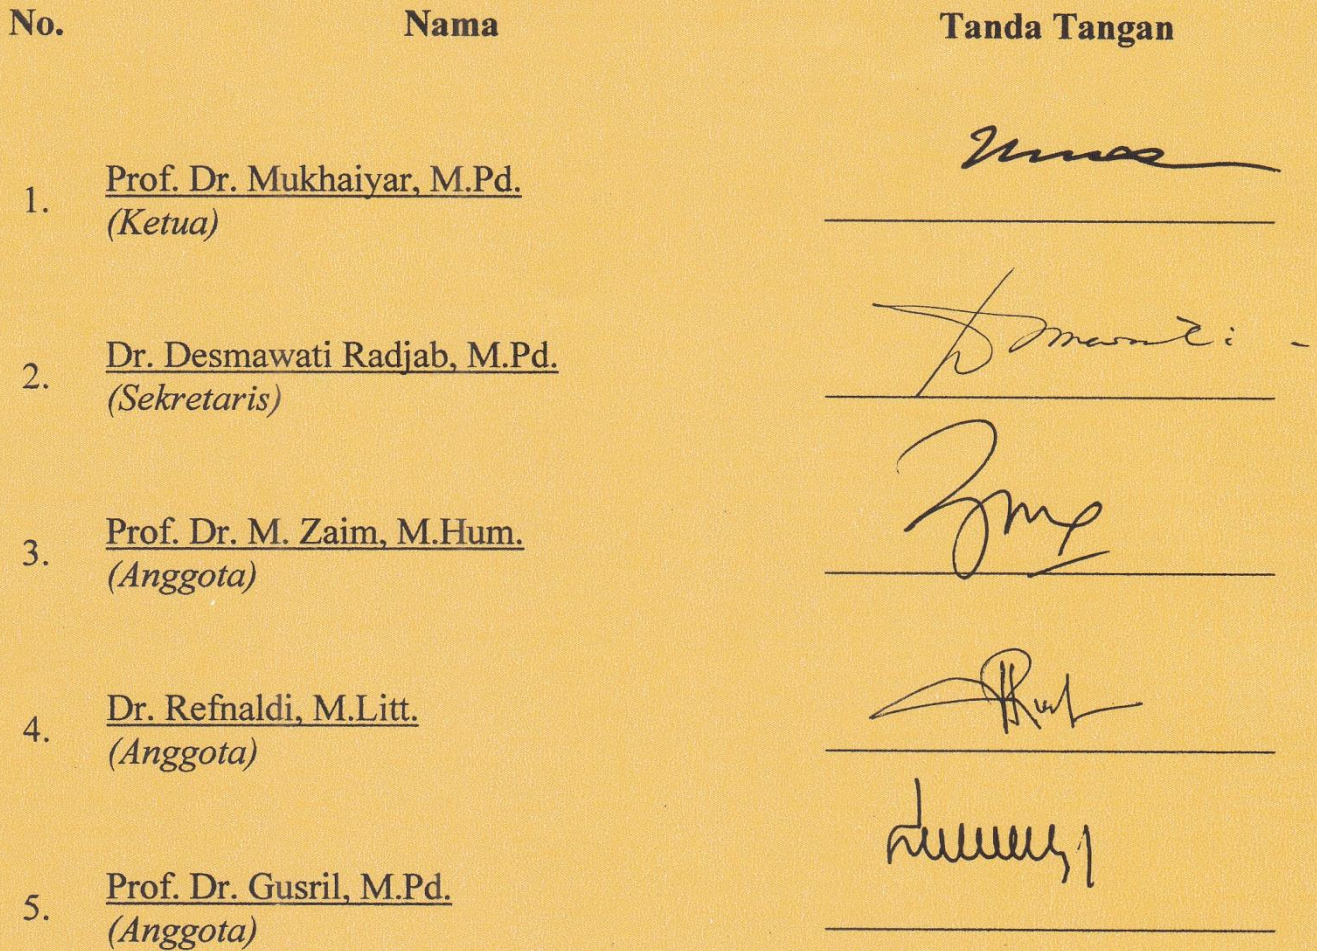 No. Nama Tanda Tangan
1. Prof. Dr. Mukhaiyar, M.Pd.
(Ketua)
2. Dr. Desmawati Radjab, M.Pd.
(Sekretaris)
3. Prof. Dr. M. Zaim, M.Hum.
(Anggota)
4. Dr. Refnaldi, M.Litt.
(Anggota)
5. Prof. Dr. Gusril, M.Pd.
(Anggota)